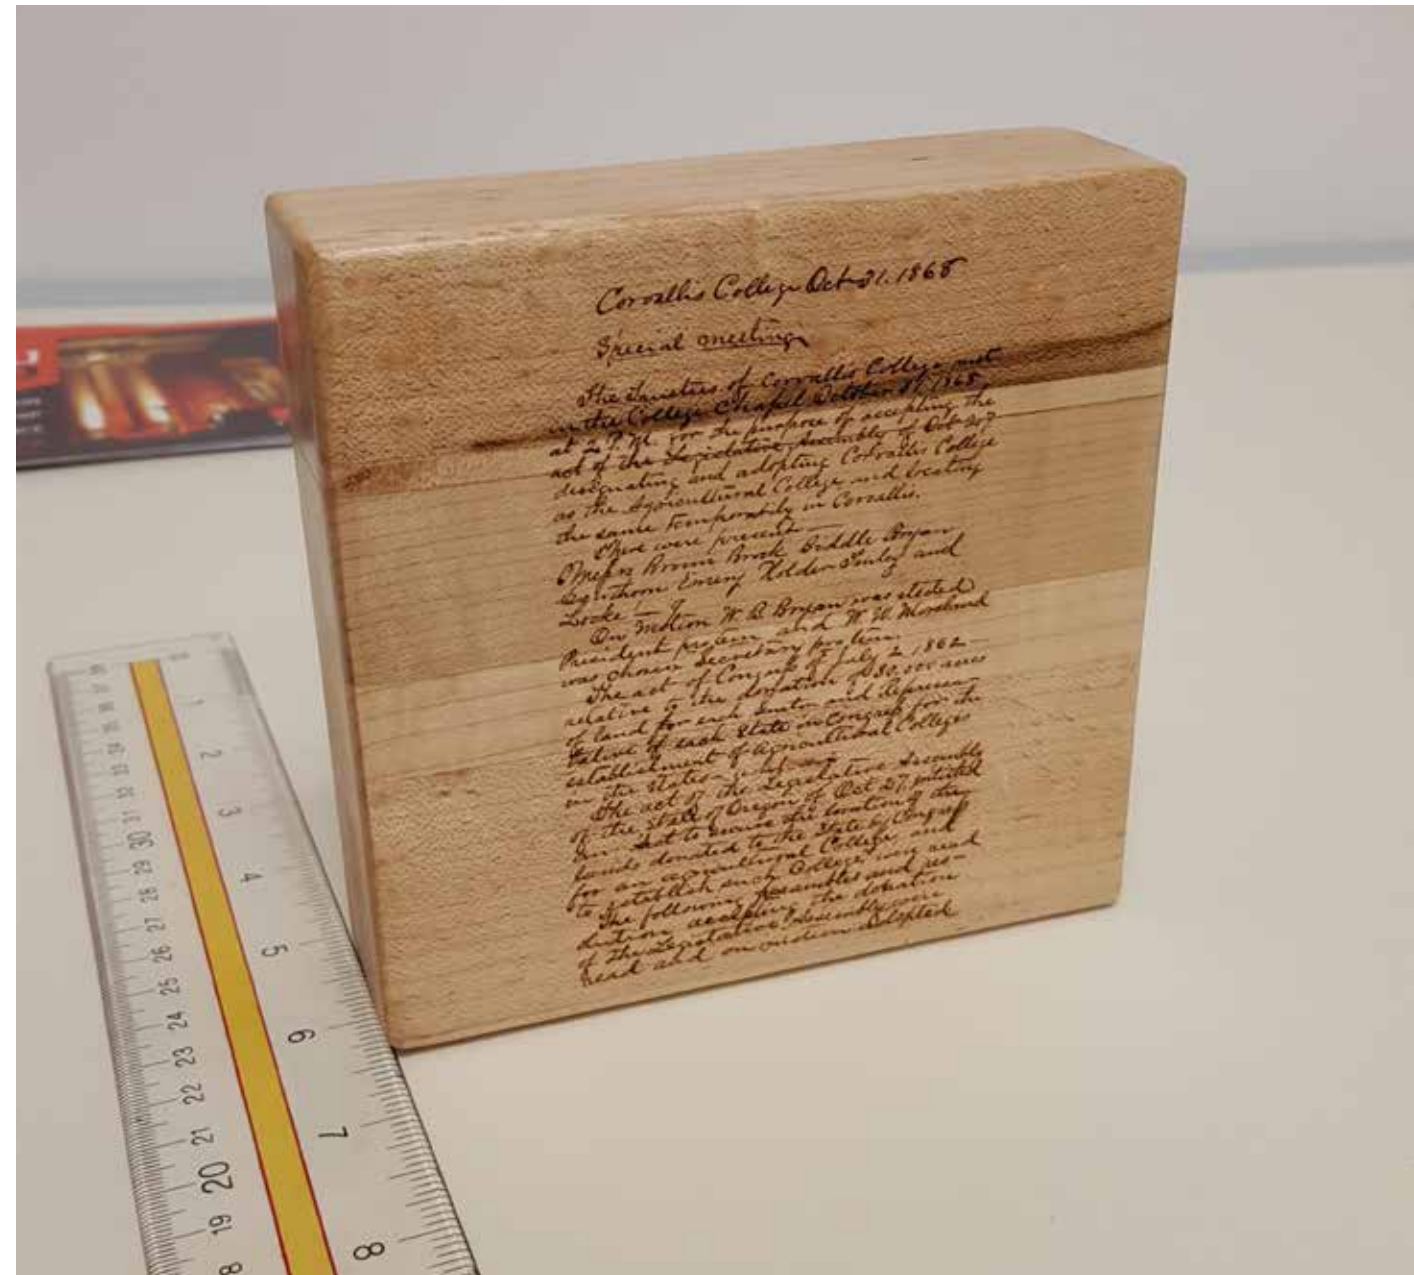 Corvallis College Oct 31. 1868
Special meeting
The Trustees of Corvallis College met
in the College Chapel October 31, 1868
at 2 P.M. for the purpose of accepting the
act of the Legislative Assembly of Oct 27
designating and adopting Corvallis College
as the Agricultural College and locating
the same temporarily in Corvallis.
There were present
Brown Brock Biddle Bryan
Emery Holder and
Locke — 9
On motion W. B. Bryan was elected
President protem and W. W. Moreland
was chosen Secretary pro tem.
The act of Congress of July 2, 1862
relative to the donation of 30,000 acres
of land for each Senator and Represen-
tative of each State in Congress for the
establishment of Agricultural Colleges
in the States
The act of the Legislative Assembly
of the State of Oregon of Oct 27 entitled
An Act to secure the location of the
lands donated to the State by Congress
for an agricultural College and
to establish such College were read
The following preambles and res-
olution accepting the donation
of the Legislative Assembly were
read and on motion adopted
1
2
3
4
5
6
7
8
32 31 30 29 28 27 26 25 24 23 22 21 20 19